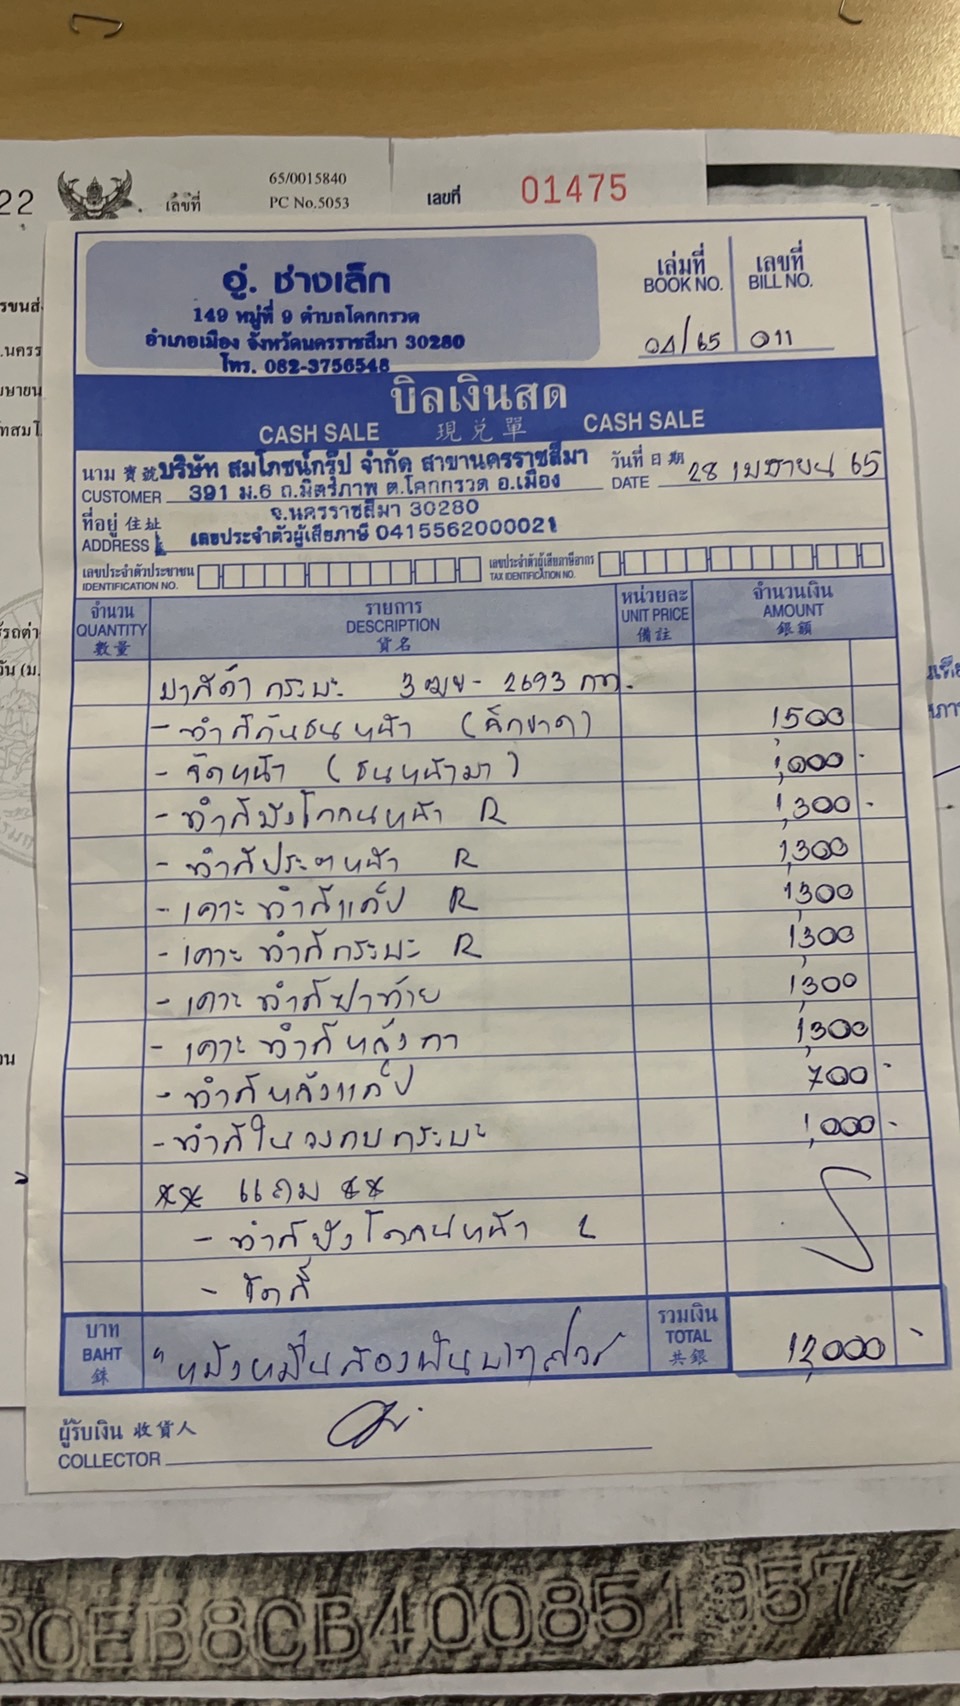 22
เลขที่
65/0015840
PC No.5053
เลขที่
01475
อู่. ช่างเล็ก
149 หมู่ที่ 9 ตำบลโคกกรวด
อำเภอเมือง จังหวัดนครราชสีมา 30280
โทร. 082-3756548
เล่มที่
BOOK NO.
04/65
เลขที่
BILL NO.
011
บิลเงินสด
CASH SALE 現兌單 CASH SALE
นาม 寳號 บริษัท สมโภชน์กรุ๊ป จำกัด สาขานครราชสีมา
CUSTOMER 391 ม.6 ถ.มิตรภาพ ต.โคกกรวด อ.เมือง
วันที่ 日期
DATE 28 เมษายน 65
ที่อยู่ 住址 จ.นครราชสีมา 30280
ADDRESS เลขประจำตัวผู้เสียภาษี 0415562000021
เลขประจำตัวประชาชน
IDENTIFICATION NO.
เลขประจำตัวผู้เสียภาษีอากร
TAX IDENTIFICATION NO.
จำนวน
QUANTITY
數量
รายการ
DESCRIPTION
貨名
หน่วยละ
UNIT PRICE
備註
จำนวนเงิน
AMOUNT
銀額
มาสด้า กระบะ 2693 กท.
- ทำสีกันชนหน้า (ฉีกขาด) 1500
- จัดหน้า (ชนหน้ามา) 1,000 -
- ทำสีบังโคลนหน้า R 1,300 -
- ทำสีประตูหน้า R 1,300
- เคาะทำสีแค็ป R 1,300
- เคาะทำสีกระบะ R 1,300
- เคาะทำสีฝาท้าย 1,300
- เคาะทำสีหลังคา 1,300
- ทำสีหลังแค็ป 700 -
- ทำสีในขอบกระบะ 1,000 -
** แถม **
- ทำสีบังโคลนหน้า L
- ขัดสี
บาท
BAHT
銖
"หนึ่งหมื่นสองพันบาทถ้วน"
รวมเงิน
TOTAL
共銀
12,000 -
ผู้รับเงิน 收貨人
COLLECTOR
R0EB8CB400851957